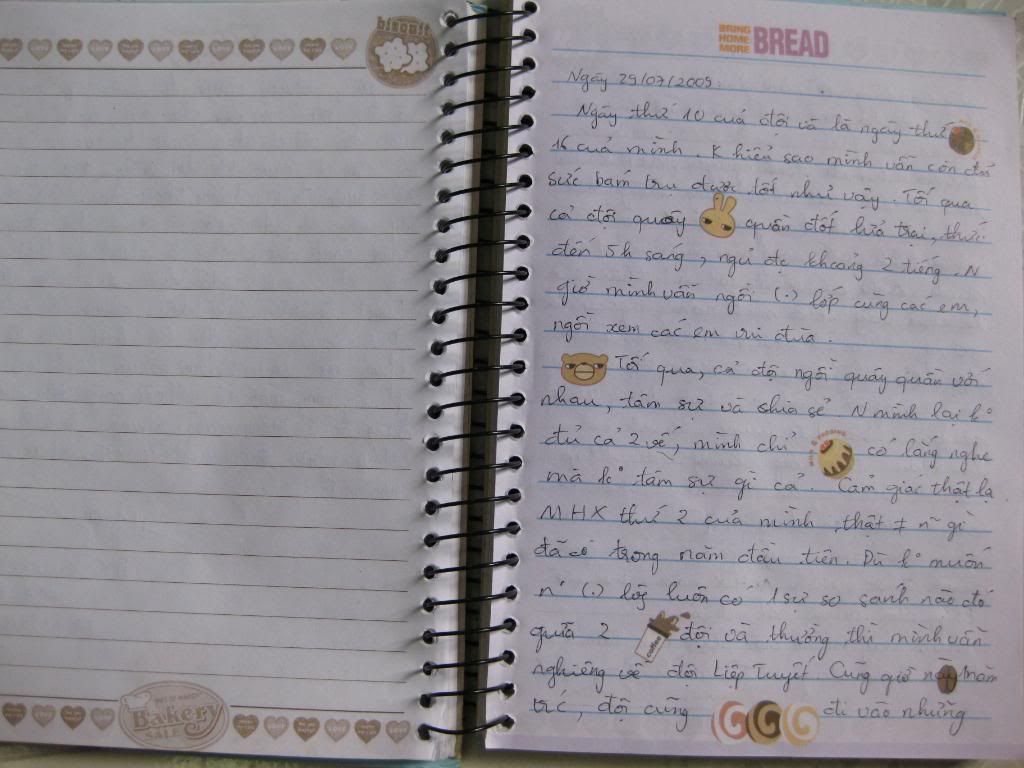 biscuit
BRING HOME MORE BREAD
Ngày 29/07/2009.
Ngày thứ 10 cuả đội và là ngày thứ
16 cuả mình. K hiểu sao mình vẫn còn đủ
sức bám trụ được tốt như vậy. Tối qua
cả đội quây quần đốt lửa trại, thức
đến 5h sáng, ngủ đc khoảng 2 tiếng. N
giờ mình vẫn ngồi (.) lớp cùng các em,
ngồi xem các em vui đùa.
Tối qua, cả đội ngồi quây quần với
nhau, tâm sự và chia sẻ N mình lại ko
đủ cả 2 vế, mình chỉ có lắng nghe
mà ko tâm sự gì cả. Cảm giác thật lạ
MHX thứ 2 của mình, thật ≠ n~ gì
đã có trong năm đầu tiên. Dù ko muốn
n (.) lòg luôn có 1 sự so sánh nào đó
giữa 2 đội và thường thì mình vẫn
coffee
nghiêng về đội Liệp Tuyết. Cũng giờ này năm
trc, đội cũng đi vào những
Bakery
SALE